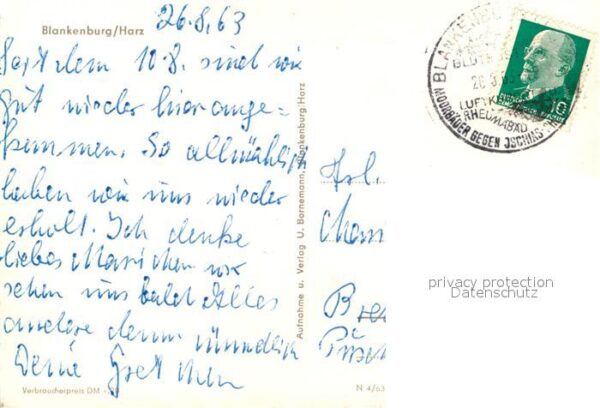 Blankenburg/Harz
26.8.63
Seit dem 10.8. sind wir
gut wieder hier ange=
kommen. So allmählich
haben wir uns wieder
erholt. Ich denke
liebes Mariechen wir
sehen uns bald Alles
andere dann mündlich
Deine Gretchen
Verbraucherpreis DM -,20
Aufnahme u. Verlag U. Bornemann, Blankenburg/Harz
N 4/63
Frl.
BLANKENBU
LUFTK
RHEUMABAD
MOORBÄDER GEGEN ISCHIAS
10
privacy protection
Datenschutz